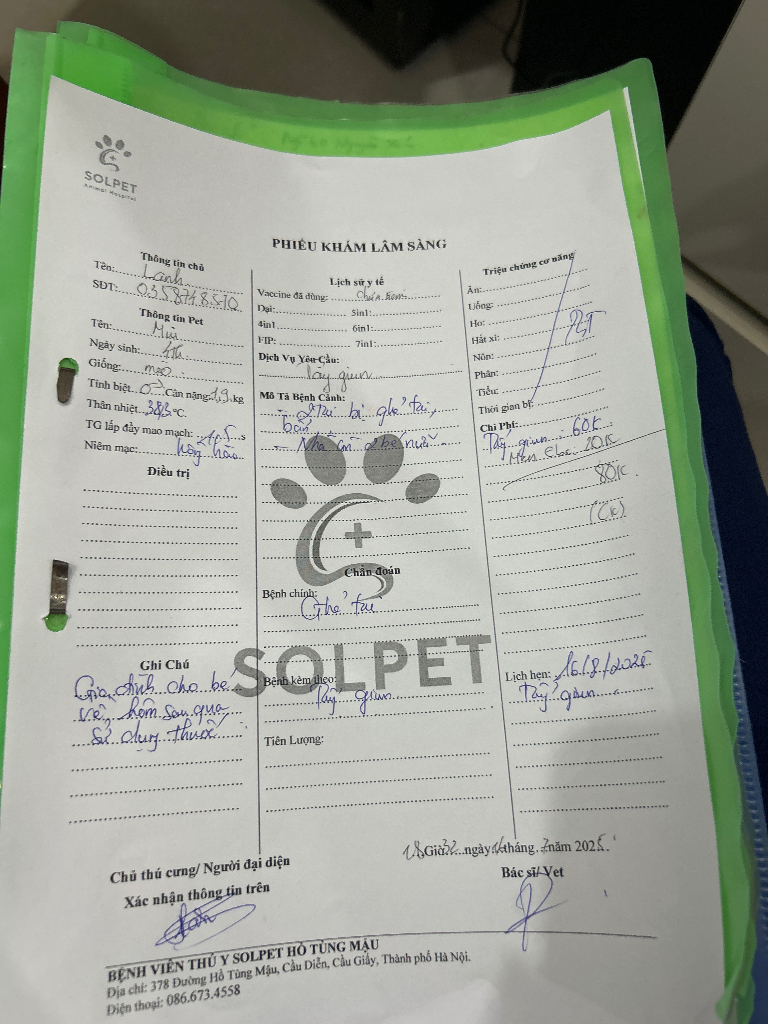 SOLPET
Animal Hospital
PHIẾU KHÁM LÂM SÀNG
Thông tin chủ
Tên: Lanh
SĐT:
Thông tin Pet
Tên:
Ngày sinh:
Giống: mèo
Tính biệt ♂ Cân nặng: 1,9 kg
Thân nhiệt 38,3 °C.
TG lấp đầy mao mạch: s
Niêm mạc: hồng hào
Điều trị
Ghi Chú
Gia đình cho bé
về, hôm sau qua
sử dụng thuốc
Lịch sử y tế
Vaccine đã dùng: chưa tiêm
Dại: 5in1:
4in1 6in1:
FIP: 7in1:
Dịch Vụ Yêu Cầu:
Tẩy giun
Mô Tả Bệnh Cảnh:
- 2 tai bị ghẻ tai,
bẩn
- Nhà ăn
Chẩn đoán
Bệnh chính:
Ghẻ tai
SOLPET
Bệnh kèm theo:
Tẩy giun
Tiên Lượng:
Triệu chứng cơ năng
Ăn:
Uống:
Ho:
Hắt xì:
Nôn:
Phân:
Tiểu:
Thời gian bị:
BT
Chi Phí:
Tẩy giun: 60K
Men 20K
80K
(CK)
Lịch hẹn: 16/8/2025
Tẩy giun
18 Giờ 32 ngày tháng 7 năm 2025
Chủ thú cưng/ Người đại diện
Xác nhận thông tin trên
Bác sĩ/ Vet
BỆNH VIỆN THÚ Y SOLPET HỒ TÙNG MẬU
Địa chỉ: 378 Đường Hồ Tùng Mậu, Cầu Diễn, Cầu Giấy, Thành phố Hà Nội.
Điện thoại: 086.673.4558